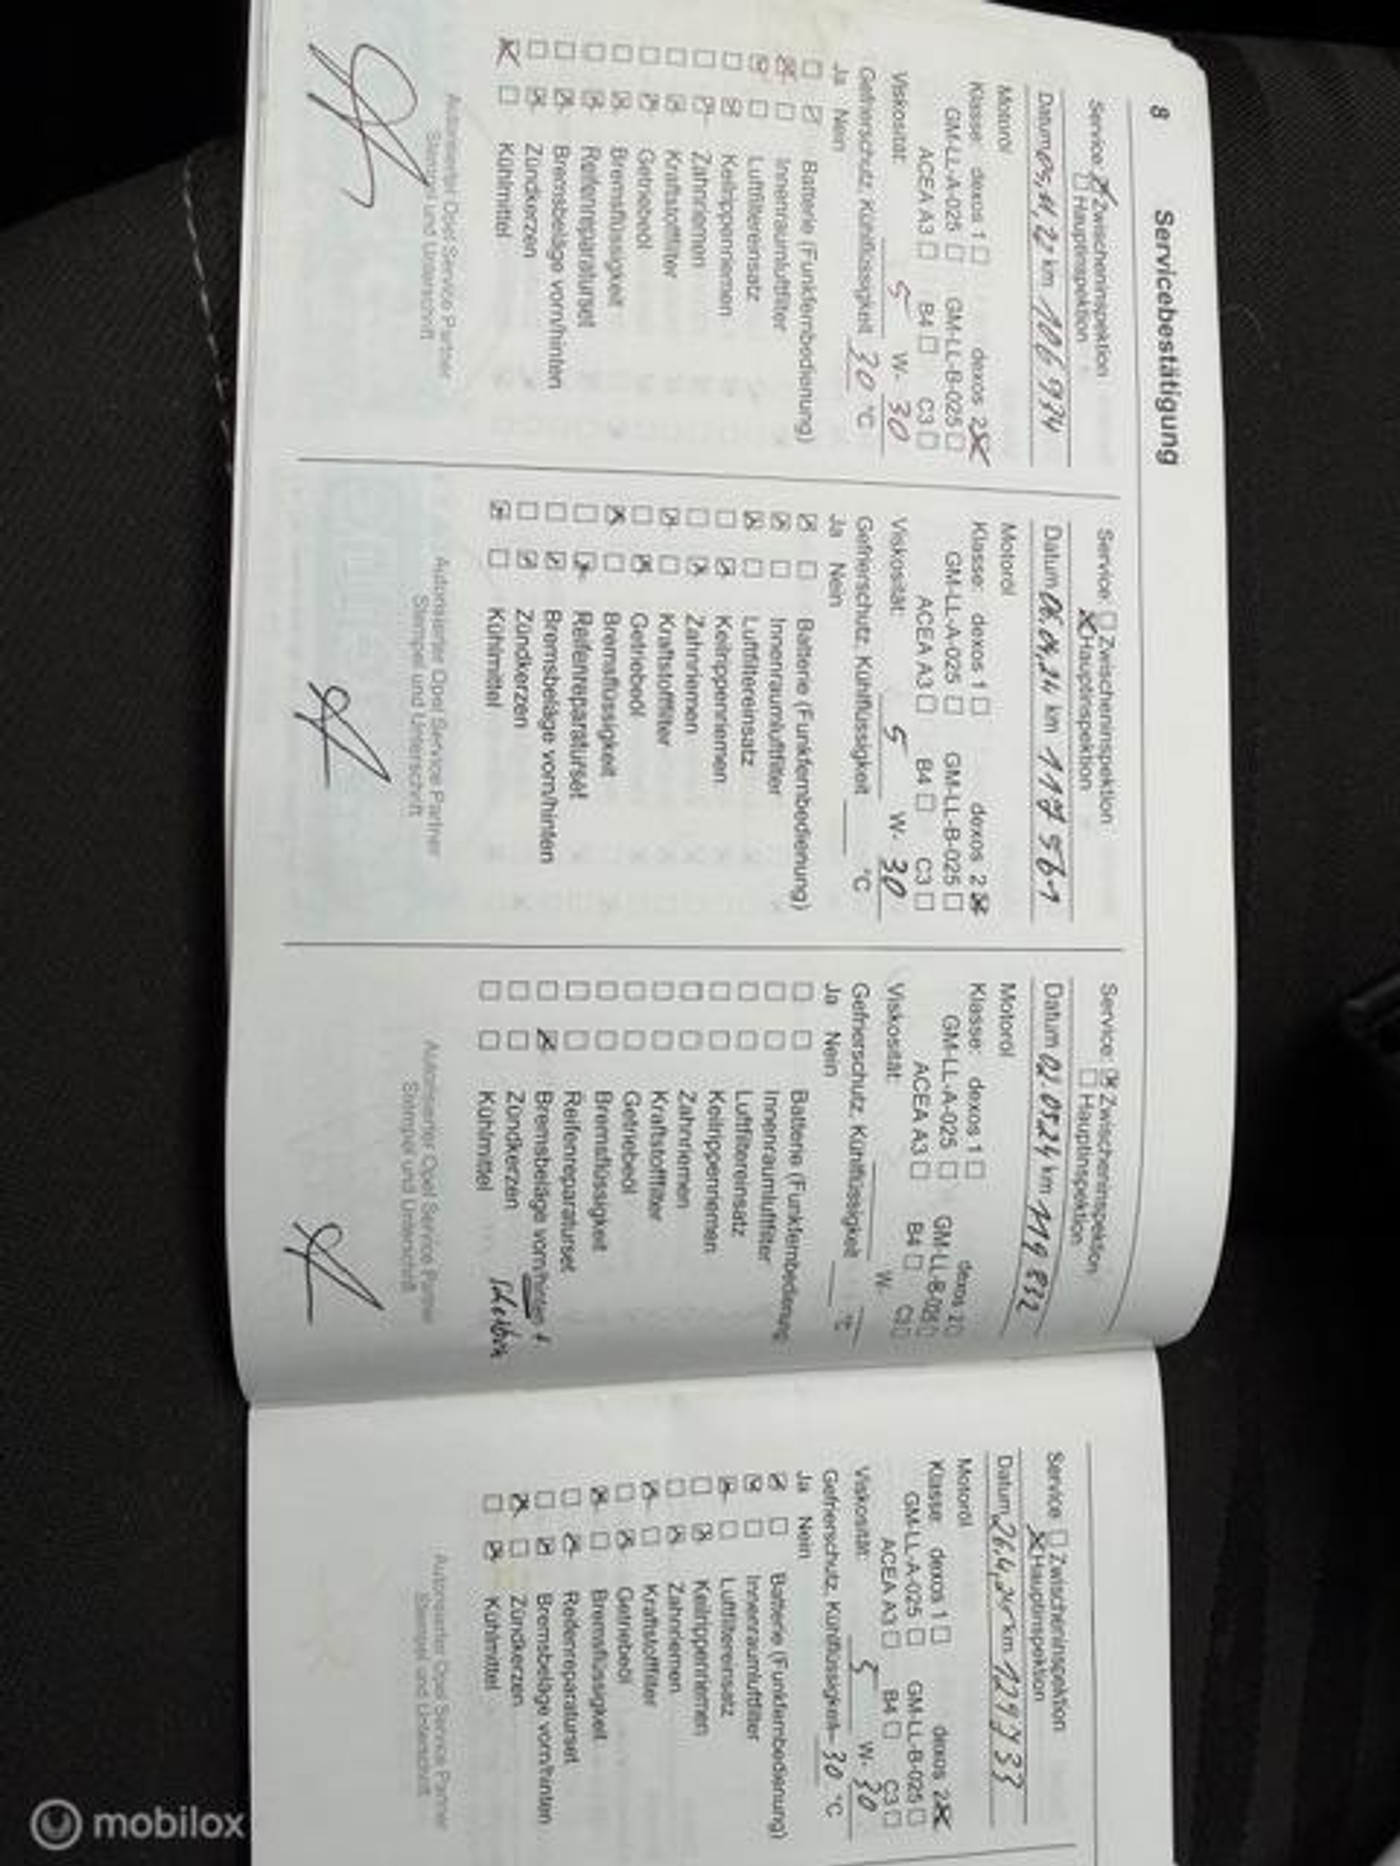 8 Servicebestätigung
Service: Zwischeninspektion
Hauptinspektion
km 106 934
Motoröl
Klasse: dexos 1 dexos 2
GM-LL-A-025 GM-LL-B-025
ACEA A3 B4 C3
Viskosität: 5 W- 30
Gefrierschutz, Kühlflüssigkeit 30 °C
Ja Nein
Batterie (Funkfernbedienung)
Innenraumluftfilter
Luftfiltereinsatz
Keilrippenriemen
Zahnriemen
Kraftstofffilter
Getriebeöl
Bremsflüssigkeit
Reifenreparaturset
Bremsbeläge vorn/hinten
Zündkerzen
Kühlmittel
Autorisierter Opel Service Partner
Stempel und Unterschrift
Service: Zwischeninspektion
Hauptinspektion
Datum 06.04.24 km 117 561
Motoröl
Klasse: dexos 1 dexos 2
GM-LL-A-025 GM-LL-B-025
ACEA A3 B4 C3
Viskosität: 5 W- 30
Gefrierschutz, Kühlflüssigkeit °C
Ja Nein
Batterie (Funkfernbedienung)
Innenraumluftfilter
Luftfiltereinsatz
Keilrippenriemen
Zahnriemen
Kraftstofffilter
Getriebeöl
Bremsflüssigkeit
Reifenreparaturset
Bremsbeläge vorn/hinten
Zündkerzen
Kühlmittel
Autorisierter Opel Service Partner
Stempel und Unterschrift
Service: Zwischeninspektion
Hauptinspektion
Datum 02.05.24 km 119 832
Motoröl
Klasse: dexos 1 dexos 2
GM-LL-A-025 GM-LL-B-025
ACEA A3 B4 C3
Viskosität: W-
Gefrierschutz, Kühlflüssigkeit °C
Ja Nein
Batterie (Funkfernbedienung
Innenraumluftfilter
Luftfiltereinsatz
Keilrippenriemen
Zahnriemen
Kraftstofffilter
Getriebeöl
Bremsflüssigkeit
Reifenreparaturset
Bremsbeläge vorn/hinten +
Zündkerzen
Kühlmittel
Autorisierter Opel Service Partner
Stempel und Unterschrift
Service: Zwischeninspektion
Hauptinspektion
Datum km
Motoröl
Klasse: dexos 1 dexos 2
GM-LL-A-025 GM-LL-B-025
ACEA A3 B4 C3
Viskosität: 5 W- 30
Gefrierschutz, Kühlflüssigkeit -30 °C
Ja Nein
Batterie (Funkfernbedienung)
Innenraumluftfilter
Luftfiltereinsatz
Keilrippenriemen
Zahnriemen
Kraftstofffilter
Getriebeöl
Bremsflüssigkeit
Reifenreparaturset
Bremsbeläge vorn/hinten
Zündkerzen
Kühlmittel
Autorisierter Opel Service Partner
Stempel und Unterschrift
mobilox